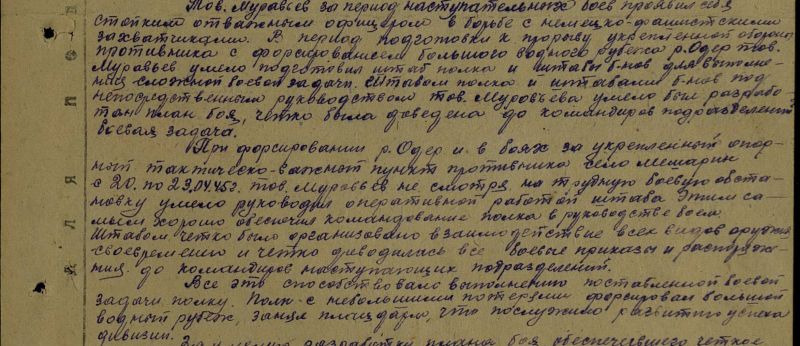 Тов. Муравьев за период наступательных боев проявил себя
стойким отважным офицером в борьбе с немецко-фашистскими
захватчиками. В период подготовки к прорыву укрепленной обороны
противника с форсированием большого водного рубежа р. Одер тов.
Муравьев умело подготовил штаб полка и штабы б-нов для выполне-
ния сложной боевой задачи. Штабом полка и штабами б-нов под
непосредственным руководством тов. Муровьева умело был разрабо-
тан план боя, четко была доведена до командиров подразделений
боевая задача.
При форсировании р. Одер и в боях за укрепленный опор-
ный тактическо-важный пункт противника село Мешарин
с 20. по 23.04.45г. тов. Муравьев не смотря на трудную боевую обста-
новку умело руководил оперативной работой штаба этим са-
мым хорошо обеспечил командование полка в руководстве боем.
Штабом четко было организовано взаимодействие всех видов оружия
своевременно и четко доводились все боевые приказы и распоряже-
ния до командиров наступающих подразделений.
Все это способствовало выполнению поставленной боевой
задачи полку. Полк с небольшими потерями форсировал большой
водный рубеж, занял плацдарм, что послужило развитию успеха
дивизии.
За умелую разработку плана боя обеспечевшего четкое